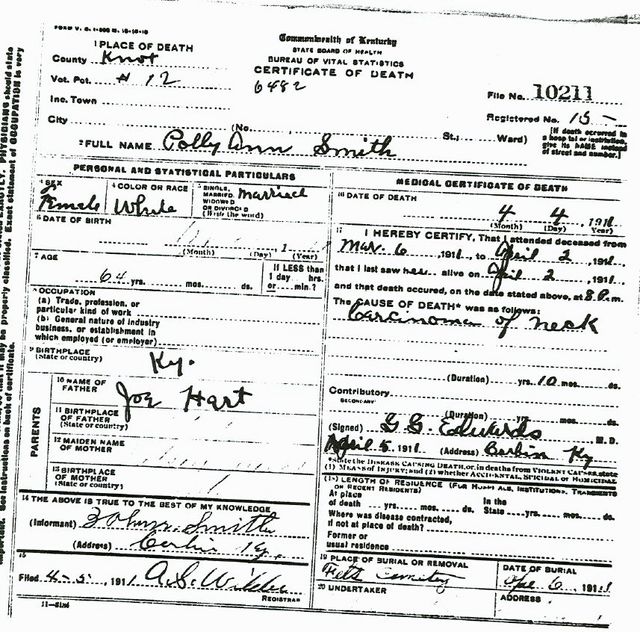 Commonwealth of Kentucky
STATE BOARD OF HEALTH
BUREAU OF VITAL STATISTICS
CERTIFICATE OF DEATH
6482
1 PLACE OF DEATH
County Knox
Vot. Pct. # 12
Inc. Town
City
(No. St.; Ward)
File No. 10211
Registered No. 15 —
[If death occurred in
a hospital or institution,
give its NAME instead
of street and number.]
2 FULL NAME Polly Ann Smith
PERSONAL AND STATISTICAL PARTICULARS
3 SEX Female
4 COLOR OR RACE White
5 SINGLE, MARRIED, WIDOWED OR DIVORCED (Write the word) Married
6 DATE OF BIRTH
(Month) (Day) (Year)
7 AGE
64 yrs. mos. ds.
If LESS than
1 day, hrs.
or min.?
8 OCCUPATION
(a) Trade, profession, or
particular kind of work
(b) General nature of industry
business, or establishment in
which employed (or employer)
9 BIRTHPLACE
(State or country) Ky.
PARENTS
10 NAME OF
FATHER Joe Hart
11 BIRTHPLACE
OF FATHER
(State or country)
12 MAIDEN NAME
OF MOTHER
13 BIRTHPLACE
OF MOTHER
(State or country)
14 THE ABOVE IS TRUE TO THE BEST OF MY KNOWLEDGE
(Informant) Smith
(Address) Corbin Ky.
15
Filed 4-5- 1911
REGISTRAR
MEDICAL CERTIFICATE OF DEATH
16 DATE OF DEATH
4 4 1911
(Month) (Day) (Year)
17 I HEREBY CERTIFY, That I attended deceased from
Mar. 6 1911, to April 2 1911,
that I last saw her alive on April 2, 1911,
and that death occured, on the date stated above, at 8 P.m.
The CAUSE OF DEATH* was as follows:
Carcinoma of neck
(Duration) yrs. 10 mos. ds.
Contributory
SECONDARY
(Duration) yrs. mos. ds.
(Signed) G. G. Edwards M. D.
April 5 1911 (Address) Corbin Ky
*State the DISEASE CAUSING DEATH, or, in deaths from VIOLENT CAUSES, state
(1) MEANS OF INJURY; and (2) whether ACCIDENTAL, SUICIDAL or HOMICIDAL
(18) LENGTH OF RESIDENCE (FOR HOSPITALS, INSTITUTIONS, TRANSIENTS
OR RECENT RESIDENTS)
At place of death yrs. mos. ds.
In the State yrs. mos. ds.
Where was disease contracted,
if not at place of death?
Former or
usual residence
19 PLACE OF BURIAL OR REMOVAL
Cemetery
DATE OF BURIAL
Apr. 6, 1911
20 UNDERTAKER
ADDRESS